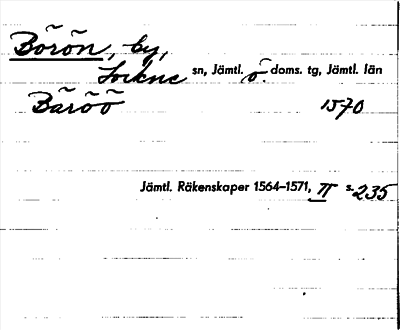 Börön, by,
Lockne sn, Jämtl. ö. doms. tg, Jämtl. län
Båröö 1570
Jämtl. Räkenskaper 1564–1571, II s. 235